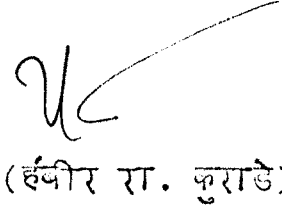 (हंबीर रा. कुराडे)